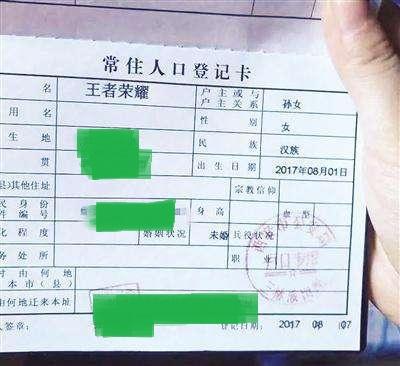 常住人口登记卡
名 王者荣耀 户主或与户主关系 孙女
用名 性别 女
生地 民族 汉族
贯 出生日期 2017年08月01日
县)其他住址 宗教信仰
民身份
件编号 身高 血型
化程度 婚姻状况 未婚 兵役状况
务处所 职业
时由何地
本市(县)
由何地迁来本址
人签章: 登记日期: 2017 08 07